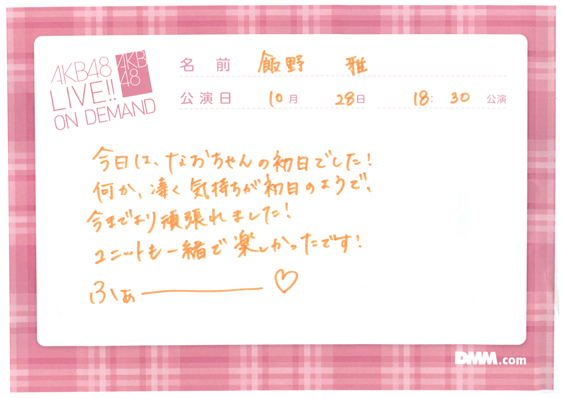 AKB48
LIVE!!
ON DEMAND
AKB
48
名 前 飯野 雅
公演日 10月 28日 18:30 公演
今日は、なおちゃんの初日でした!
何か、凄く気持ちが初日のようで、
今までより頑張れました!
ユニットも一緒で楽しかったです!
ふぁ────♡
DMM.com